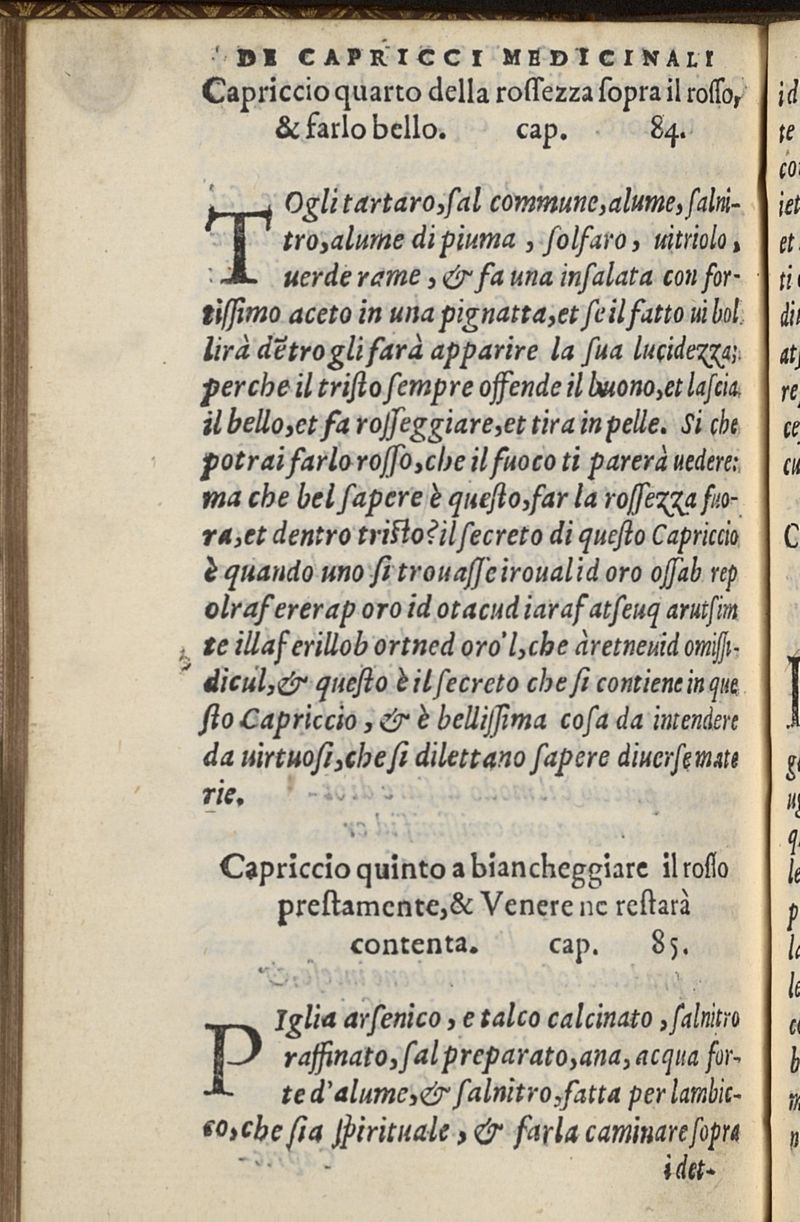 DE CAPRICCI MEDICINALI
Capriccio quarto della roſſezza ſopra il roſſo,
& farlo bello. cap. 84.
TOgli tartaro, ſal commune, alume, ſalni-
tro, alume di piuma , ſolfaro , uitriolo ,
uerde rame , & fa una inſalata con for-
tiſſimo aceto in una pignatta, et ſe il fatto ui bol
lirà dẽtro gli farà apparire la ſua lucidezza;
perche il triſto ſempre offende il buono, et laſcia
il bello, et fa roſſeggiare, et tira in pelle. Si che
potrai farlo roſſo, che il fuoco ti parerà uedere:
ma che bel ſapere è queſto, far la roſſezza fuo-
ra, et dentro triſto? il ſecreto di queſto Capriccio
è quando uno ſi trouaſſe iroualid oro oſſab rep
olraf ererap oro id otacud iaraf atſeuq arutſim
te illaf erillob ortned oro'l, che àretneuid omiſſi-
dicul, & queſto è il ſecreto che ſi contiene in que
ſto Capriccio , & è belliſſima coſa da intendere
da uirtuoſi, che ſi dilettano ſapere diuerſe mate
rie.
Capriccio quinto a biancheggiare il roſſo
preſtamente, & Venere ne reſtarà
contenta. cap. 85.
PIglia arſenico , e talco calcinato , ſalnitro
raffinato, ſal preparato, ana, acqua for-
te d'alume, & ſalnitro, fatta per lambic-
co, che ſia ſpirituale , & farla caminare ſopra
i det-